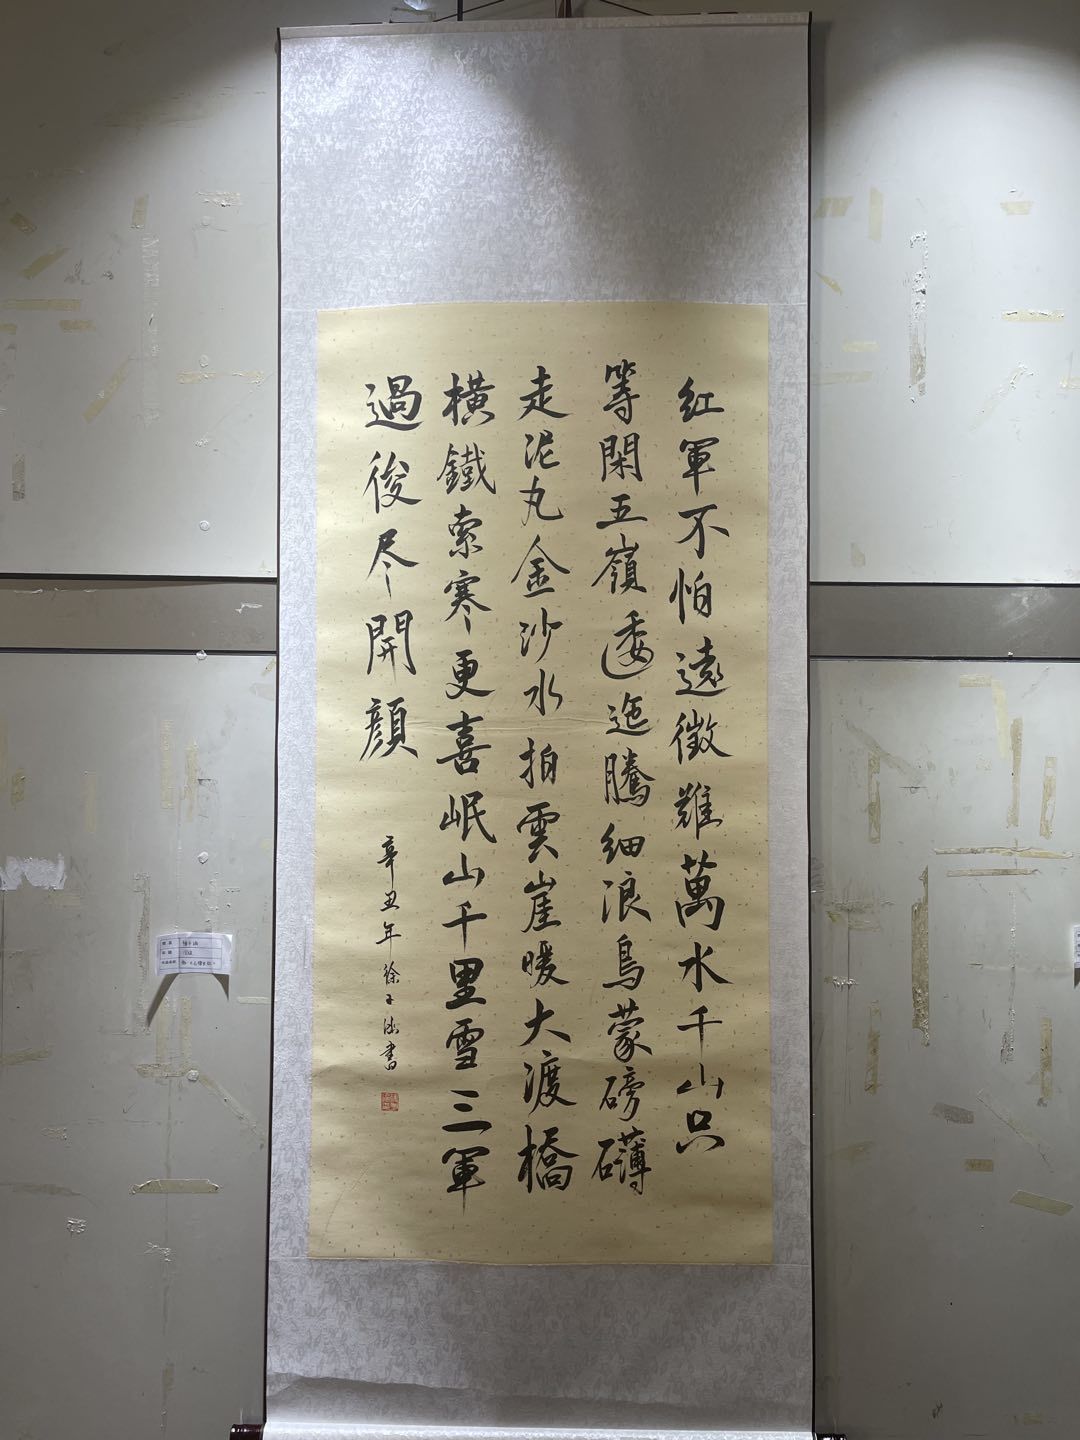 紅軍不怕遠徵難萬水千山只
等閑五嶺逶迤騰細浪烏蒙磅礴
走泥丸金沙水拍雲崖暖大渡橋
橫鐵索寒更喜岷山千里雪三軍
過後尽開顏
辛丑年徐子書